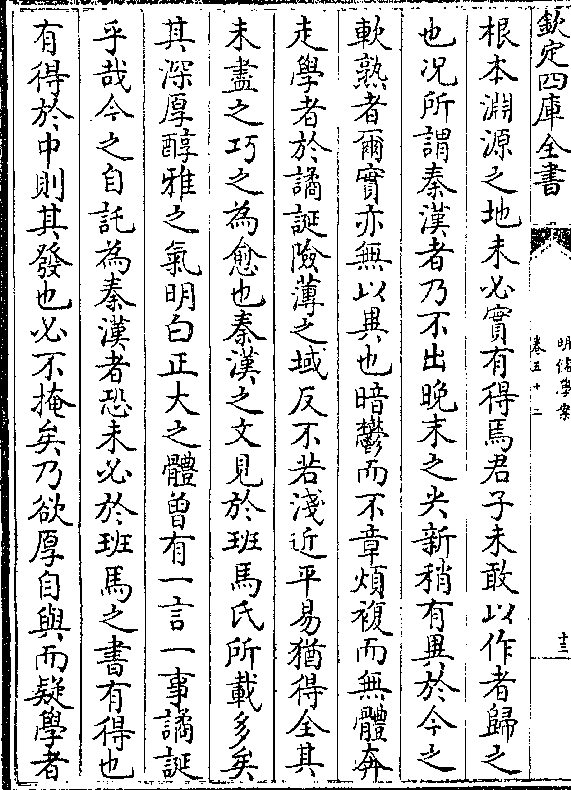 欽定四庫全書
明儒學案
卷五十二
十三
根本淵源之地未必實有得焉君子未敢以作者歸之
也况所謂秦漢者乃不出晚末之尖新稍有異於今之
軟熟者爾實亦無以異也暗鬱而不章煩複而無體奔
走學者於譎誕險薄之域反不若淺近平易猶得全其
未盡之巧之為愈也秦漢之文見於班馬氏所載多矣
其深厚醇雅之氣明白正大之體曾有一言一事譎誕
乎哉今之自託為秦漢者恐未必於班馬之書有得也
有得於中則其發也必不掩矣乃欲厚自與而疑學者